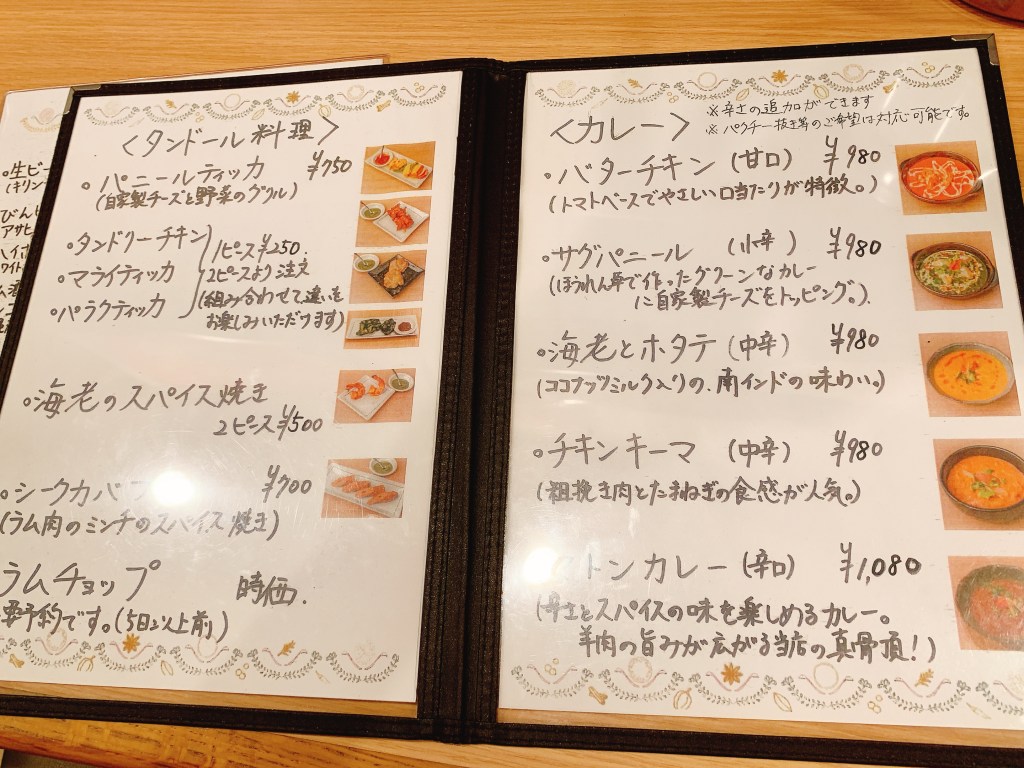 ・生ビ
(キリン
びんビ
アサヒ
ハイボ
ホワイト
<タンドール料理>
・パニールティッカ ¥750
(自家製チーズと野菜のグリル)
・タンドリーチキン
・マライティッカ
・パラクティッカ
1ピース¥250.
2ピースより注文
(組み合わせて違いを
お楽しみいただけます)
・海老のスパイス焼き
2ピース¥500
・シークカバ ¥700
(ラム肉のミンチのスパイス焼き)
ラムチョップ 時価.
要予約です。(5日以上前)
<カレー>
※辛さの追加ができます
※パクチー抜き等のご希望は対応可能です。
・バターチキン (甘口) ¥980
(トマトベースでやさしい口当たりが特徴。)
・サグパニール (小辛) ¥980
(ほうれん草で作ったグリーンなカレー
に自家製チーズをトッピング。)
・海老とホタテ (中辛) ¥980
(ココナッツミルク入りの、南インドの味わい。)
・チキンキーマ (中辛) ¥980
(粗挽き肉とたまねぎの食感が人気。)
トンカレー (辛口) ¥1,080
(辛さとスパイスの味を楽しめるカレー。
羊肉の旨みが広がる当店の真骨頂!)